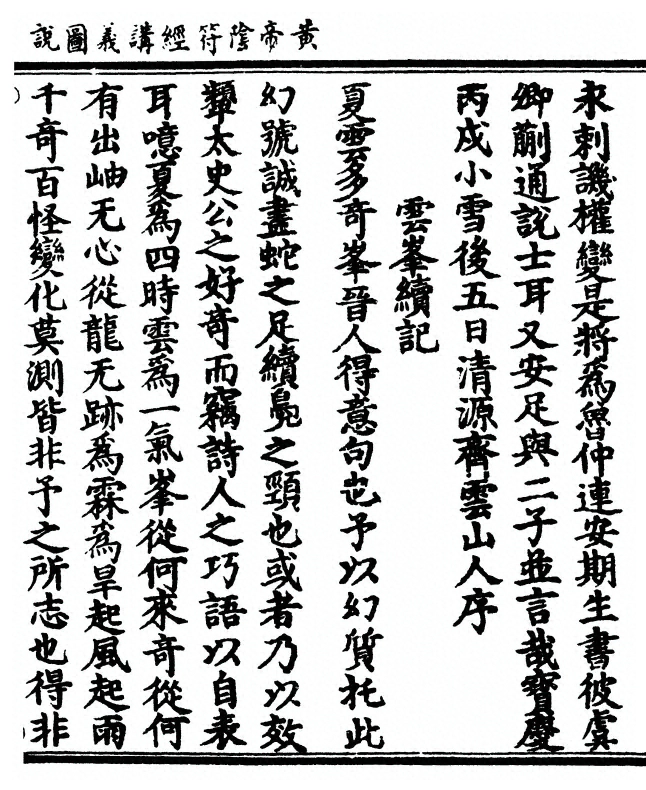 黃帝陰符經講義圖說
永刺譏權變是將爲魯仲連安期生書彼虞
卿蒯通說士耳又安足與二子並言哉寶慶
丙戌小雪後五日清源齋雲山人序
雲峯續記
夏雲多奇峯晉人得意句也予以幻質托此
幻號誠盡蛇之足續鳬之頸也或者乃以效
顰太史公之好奇而竊詩人之巧語以自表
耳噫夏爲四時雲爲一氣峯從何來奇從何
有出岫无心從龍无跡爲霖爲旱起風起雨
千奇百怪變化莫測皆非予之所志也得非